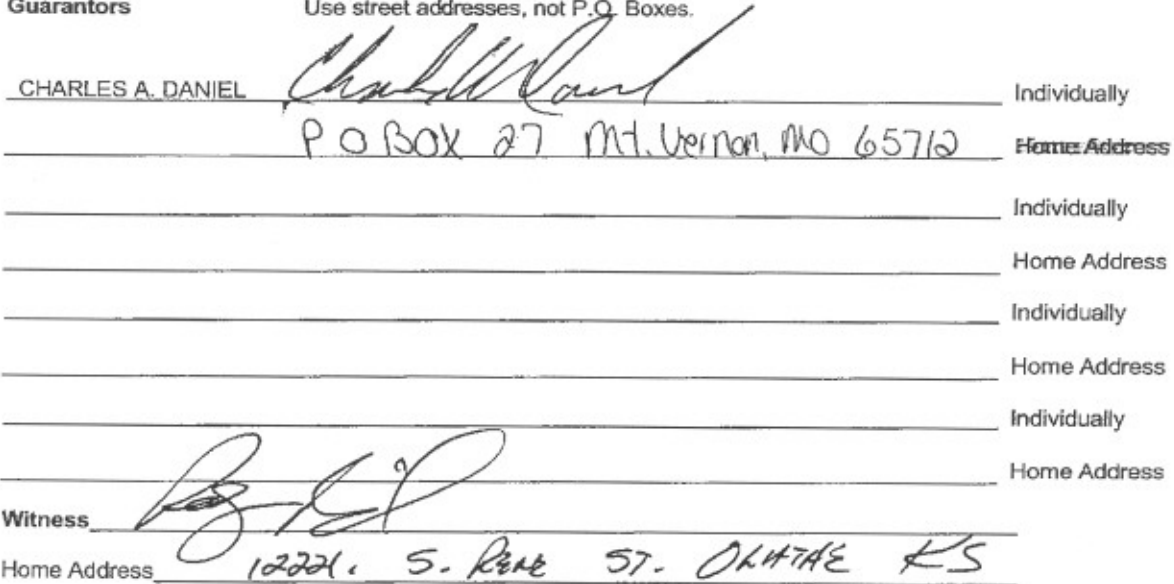 Guarantors Use street addresses, not P.O. Boxes.
CHARLES A. DANIEL Individually
P O BOX 27 Mt. Vernon, MO 65712 Home Address
Individually
Home Address
Individually
Home Address
Individually
Home Address
Witness
Home Address 12221. S. RENE ST. OLATHE KS